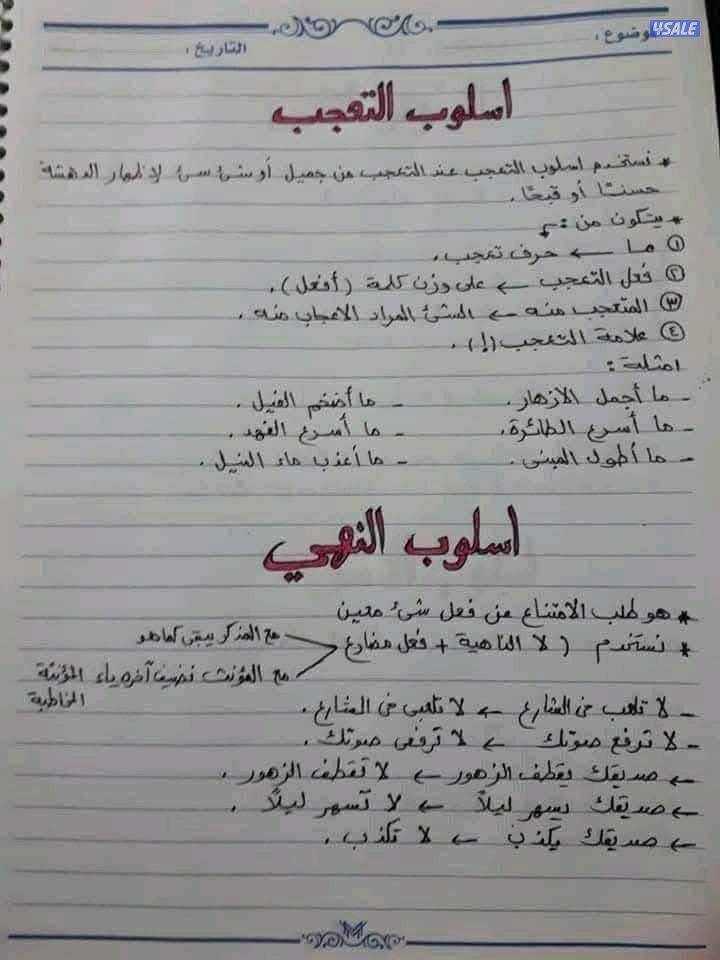 4SALE
الموضوع :
التاريخ :
اسلوب التعجب
* نستخدم اسلوب التعجب عند التعجب من جميل أو شئ سئ لإظهار الدهشة
حسنًا أو قبحًا .
* يتكون من :-
① ما ← حرف تعجب .
② فعل التعجب ← على وزن كلمة (أفعل) .
③ المتعجب منه ← الشئ المراد الاعجاب منه .
④ علامة التعجب (!) .
امثلة :
- ما أجمل الأزهار . - ما أضخم الفيل .
- ما أسرع الطائرة . - ما أسرع الفهد .
- ما أطول المبنى . - ما أعذب ماء النيل .
اسلوب النهي
* هو طلب الامتناع عن فعل شئ معين
* نستخدم ( لا الناهية + فعل مضارع مع المذكر يبقى كما هو
مع المؤنث نضيف آخره ياء المؤنثة
المخاطبة
- لا تلعب في الشارع ← لا تلعبي في الشارع .
- لا ترفع صوتك ← لا ترفعي صوتك .
← صديقك يقطف الزهور ← لا تقطف الزهور .
← صديقك يسهر ليلاً ← لا تسهر ليلاً .
← صديقك يكذب ← لا تكذب .